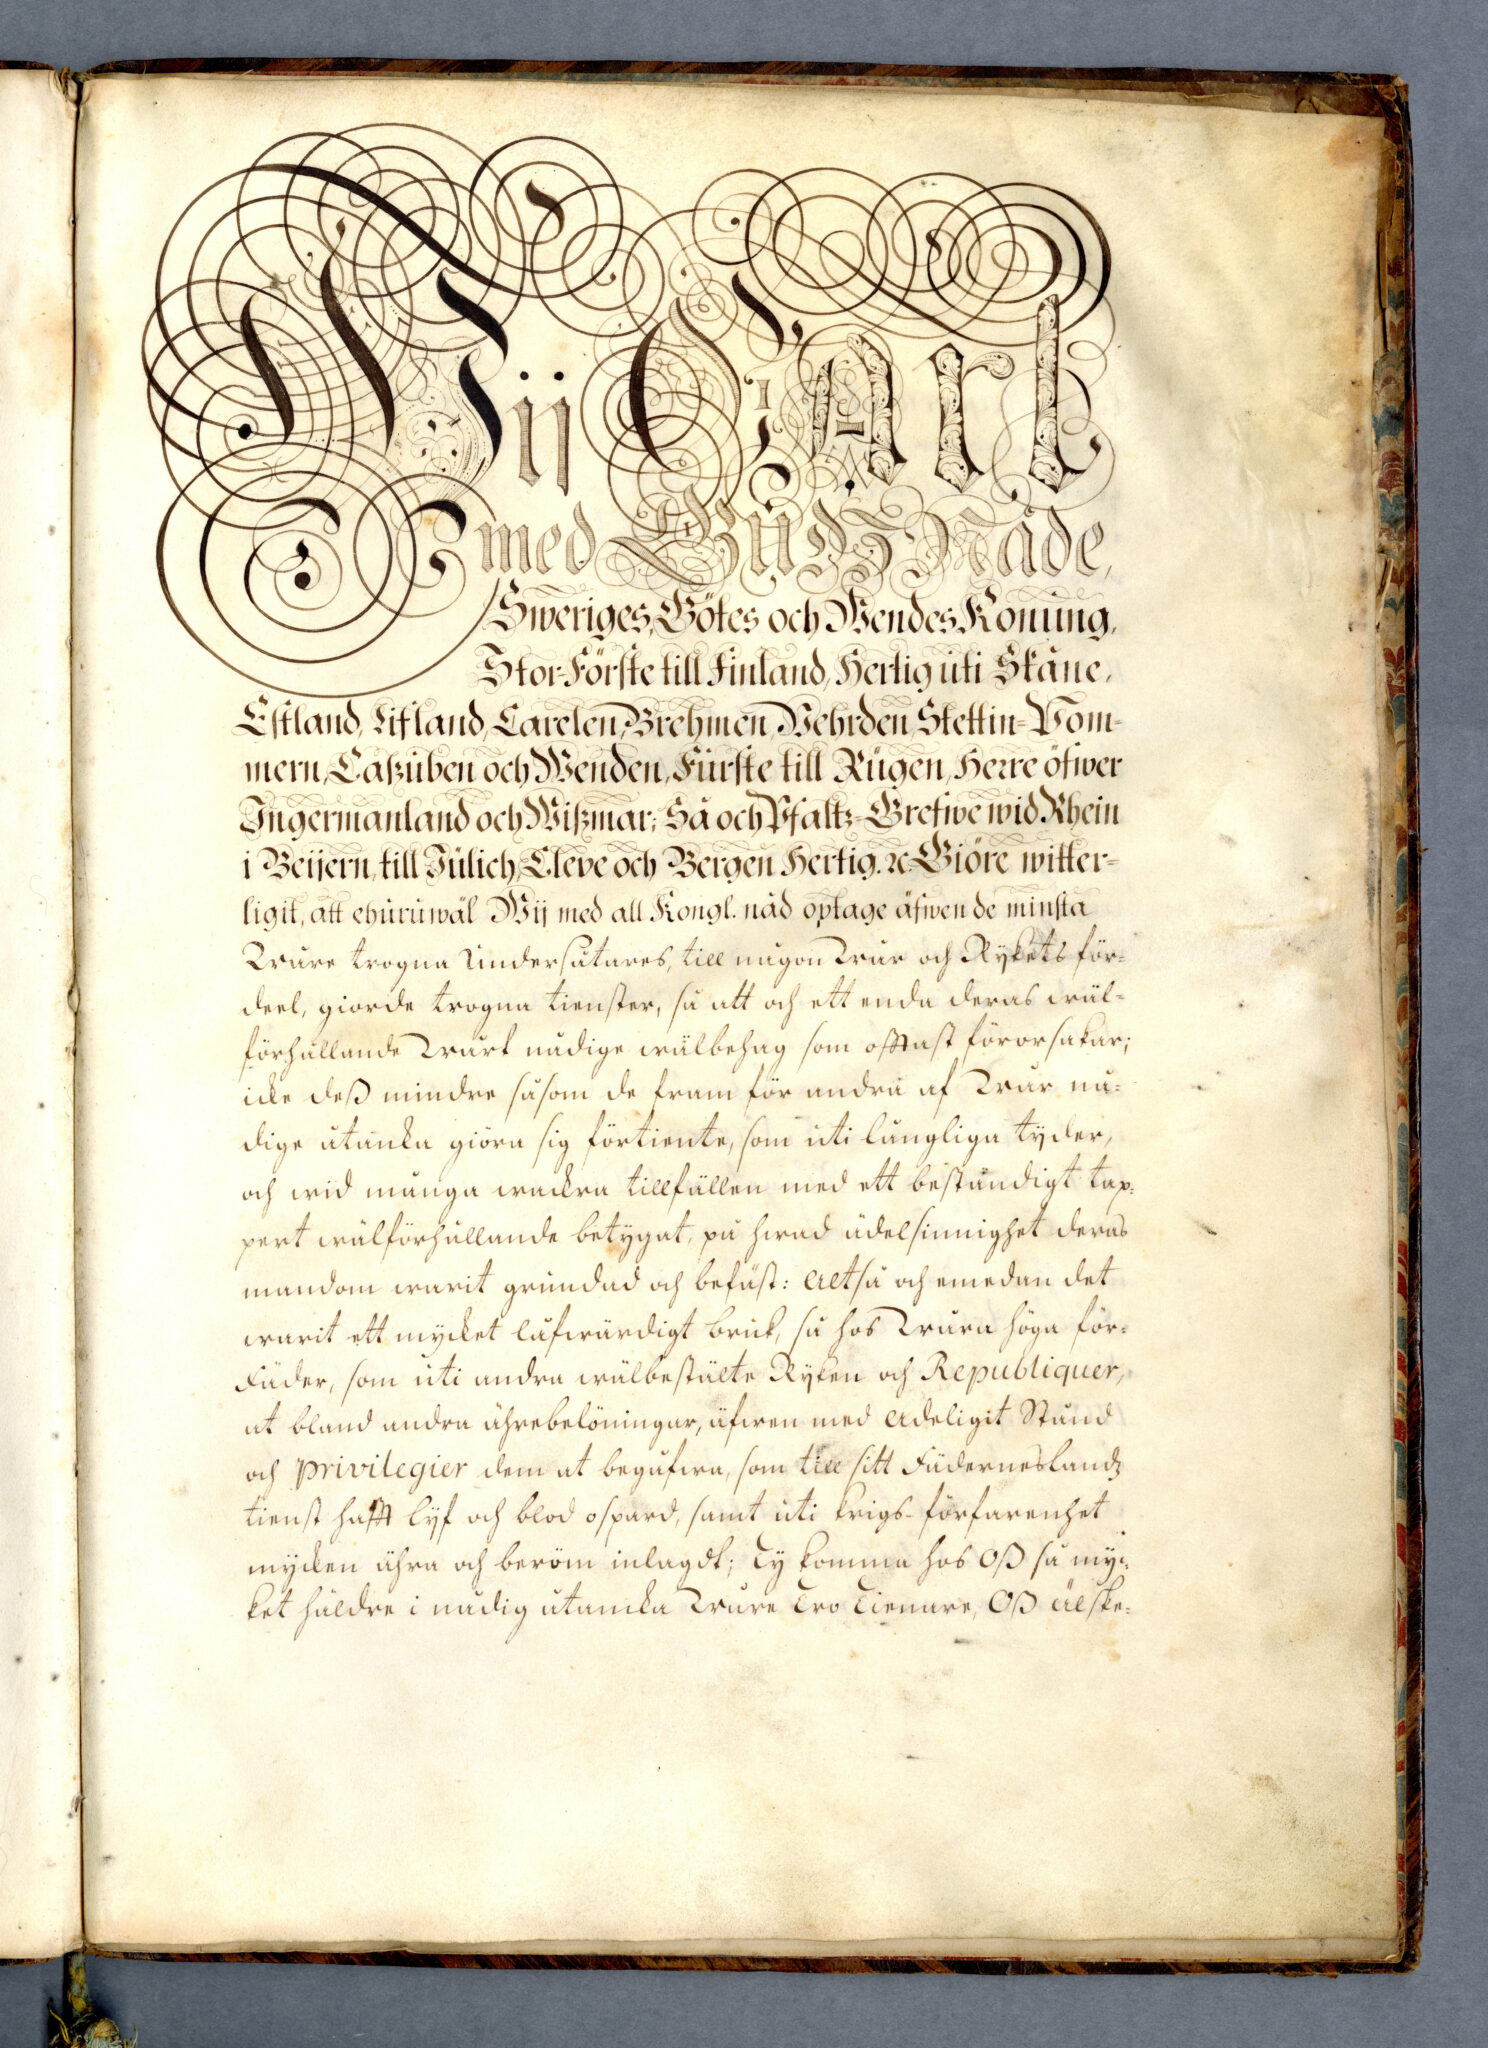 Wij Carl
med Gudz Nåde,
Sweriges, Götes och Wendes Konung,
Stor-Förste till Finland, Hertig uti Skåne,
Estland, Lifland, Carelen, Brehmen, Vehrden, Stettin-Pom-
mern, Caßuben och Wenden, Fürste till Rügen, Herre öfwer
Ingermanland och Wißmar; Så och Pfaltz-Grefwe wid Rhein
i Beijern, till Jülich, Cleve och Bergen Hertig. ꝛc. Giöre witter-
ligit, att ehuruwäl Wij med all Kongl. nåd optage äfwen de minsta
Wåre trogna Undersåtares, till någon Wår och Rykets för-
deel, giorde trogna tienster, så att och ett enda deras wäl-
förhållande Wårt nådige wälbehag som offtast förorsakar;
icke deß mindre såsom de fram för andra af Wår nå-
dige åtancka giöra sig förtiente, som uti långliga tyder,
och wid många wackra tillfällen med ett beståndigt tap-
pert wälförhållande betygat, på hwad ädelsinnighet deras
mandom warit grundad och befäst: Altså och emedan det
warit ett mycket låfwärdigt bruk, så hos Wåra höga för-
Fäder, som uti andra wälbestälte Ryken och Republiquer,
at bland andra ährebelöningar, äfwen med Adeligit Stånd
och Privilegier dem at begåfwa, som till sitt Fäderneslandz
tienst hafft lyf och blod ospard, samt uti krigs-förfarenhet
mycken ähra och beröm inlagdt; Ty komma hos Oß så myc-
ket häldre i nådig åtancka Wåre Tro Tienare, Oß Älske-